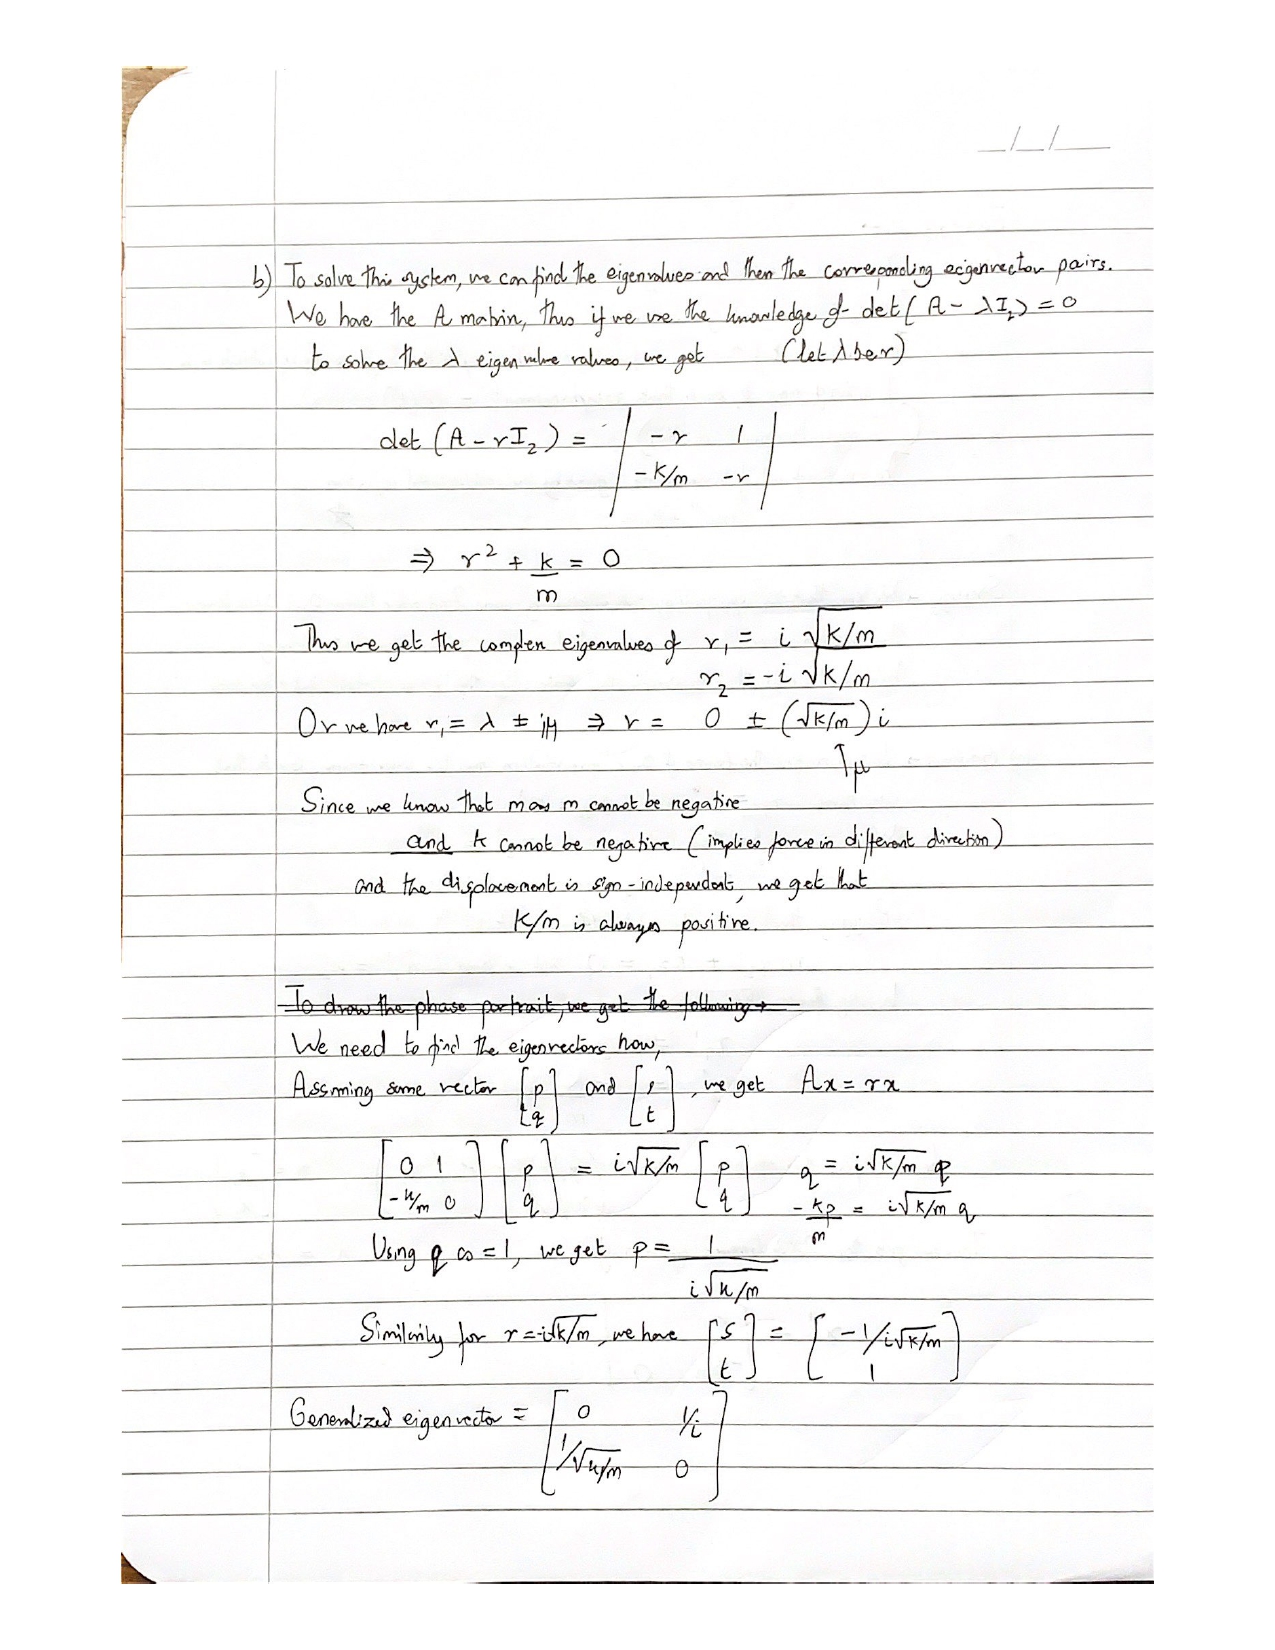 _/_/__
b) To solve this system, we can find the eigenvalues and then the corresponding eigenvector pairs.
We have the A matrix, thus if we use the knowledge of det(A - λI₂) = 0
to solve the λ eigen value values, we get (let λ be r)
det (A - rI₂) = | -r 1 |
| -k/m -r |
⇒ r² + k/m = 0
Thus we get the complex eigenvalues of r₁ = i √(k/m)
r₂ = -i √k/m
Or we have r₁ = λ ± iμ ⇒ r = 0 ± (√k/m) i
↑μ
Since we know that mass m cannot be negative
and k cannot be negative (implies force in different direction)
and the displacement is sign-independent, we get that
k/m is always positive.
To draw the phase portrait, we get the following →
We need to find the eigenvectors now,
Assming some vector [p q] and [s t], we get Ax = rx
[0 1] [p] = i√k/m [p] q = i√k/m p
[-k/m 0] [q] [q] -kp/m = i√k/m q
Using q as = 1, we get p = 1/(i√k/m)
Similarily for r = -i√k/m, we have [s] = [-1/i√k/m]
[t] [1]
Generalized eigenvector = [0 1/i]
[1/√k/m 0]